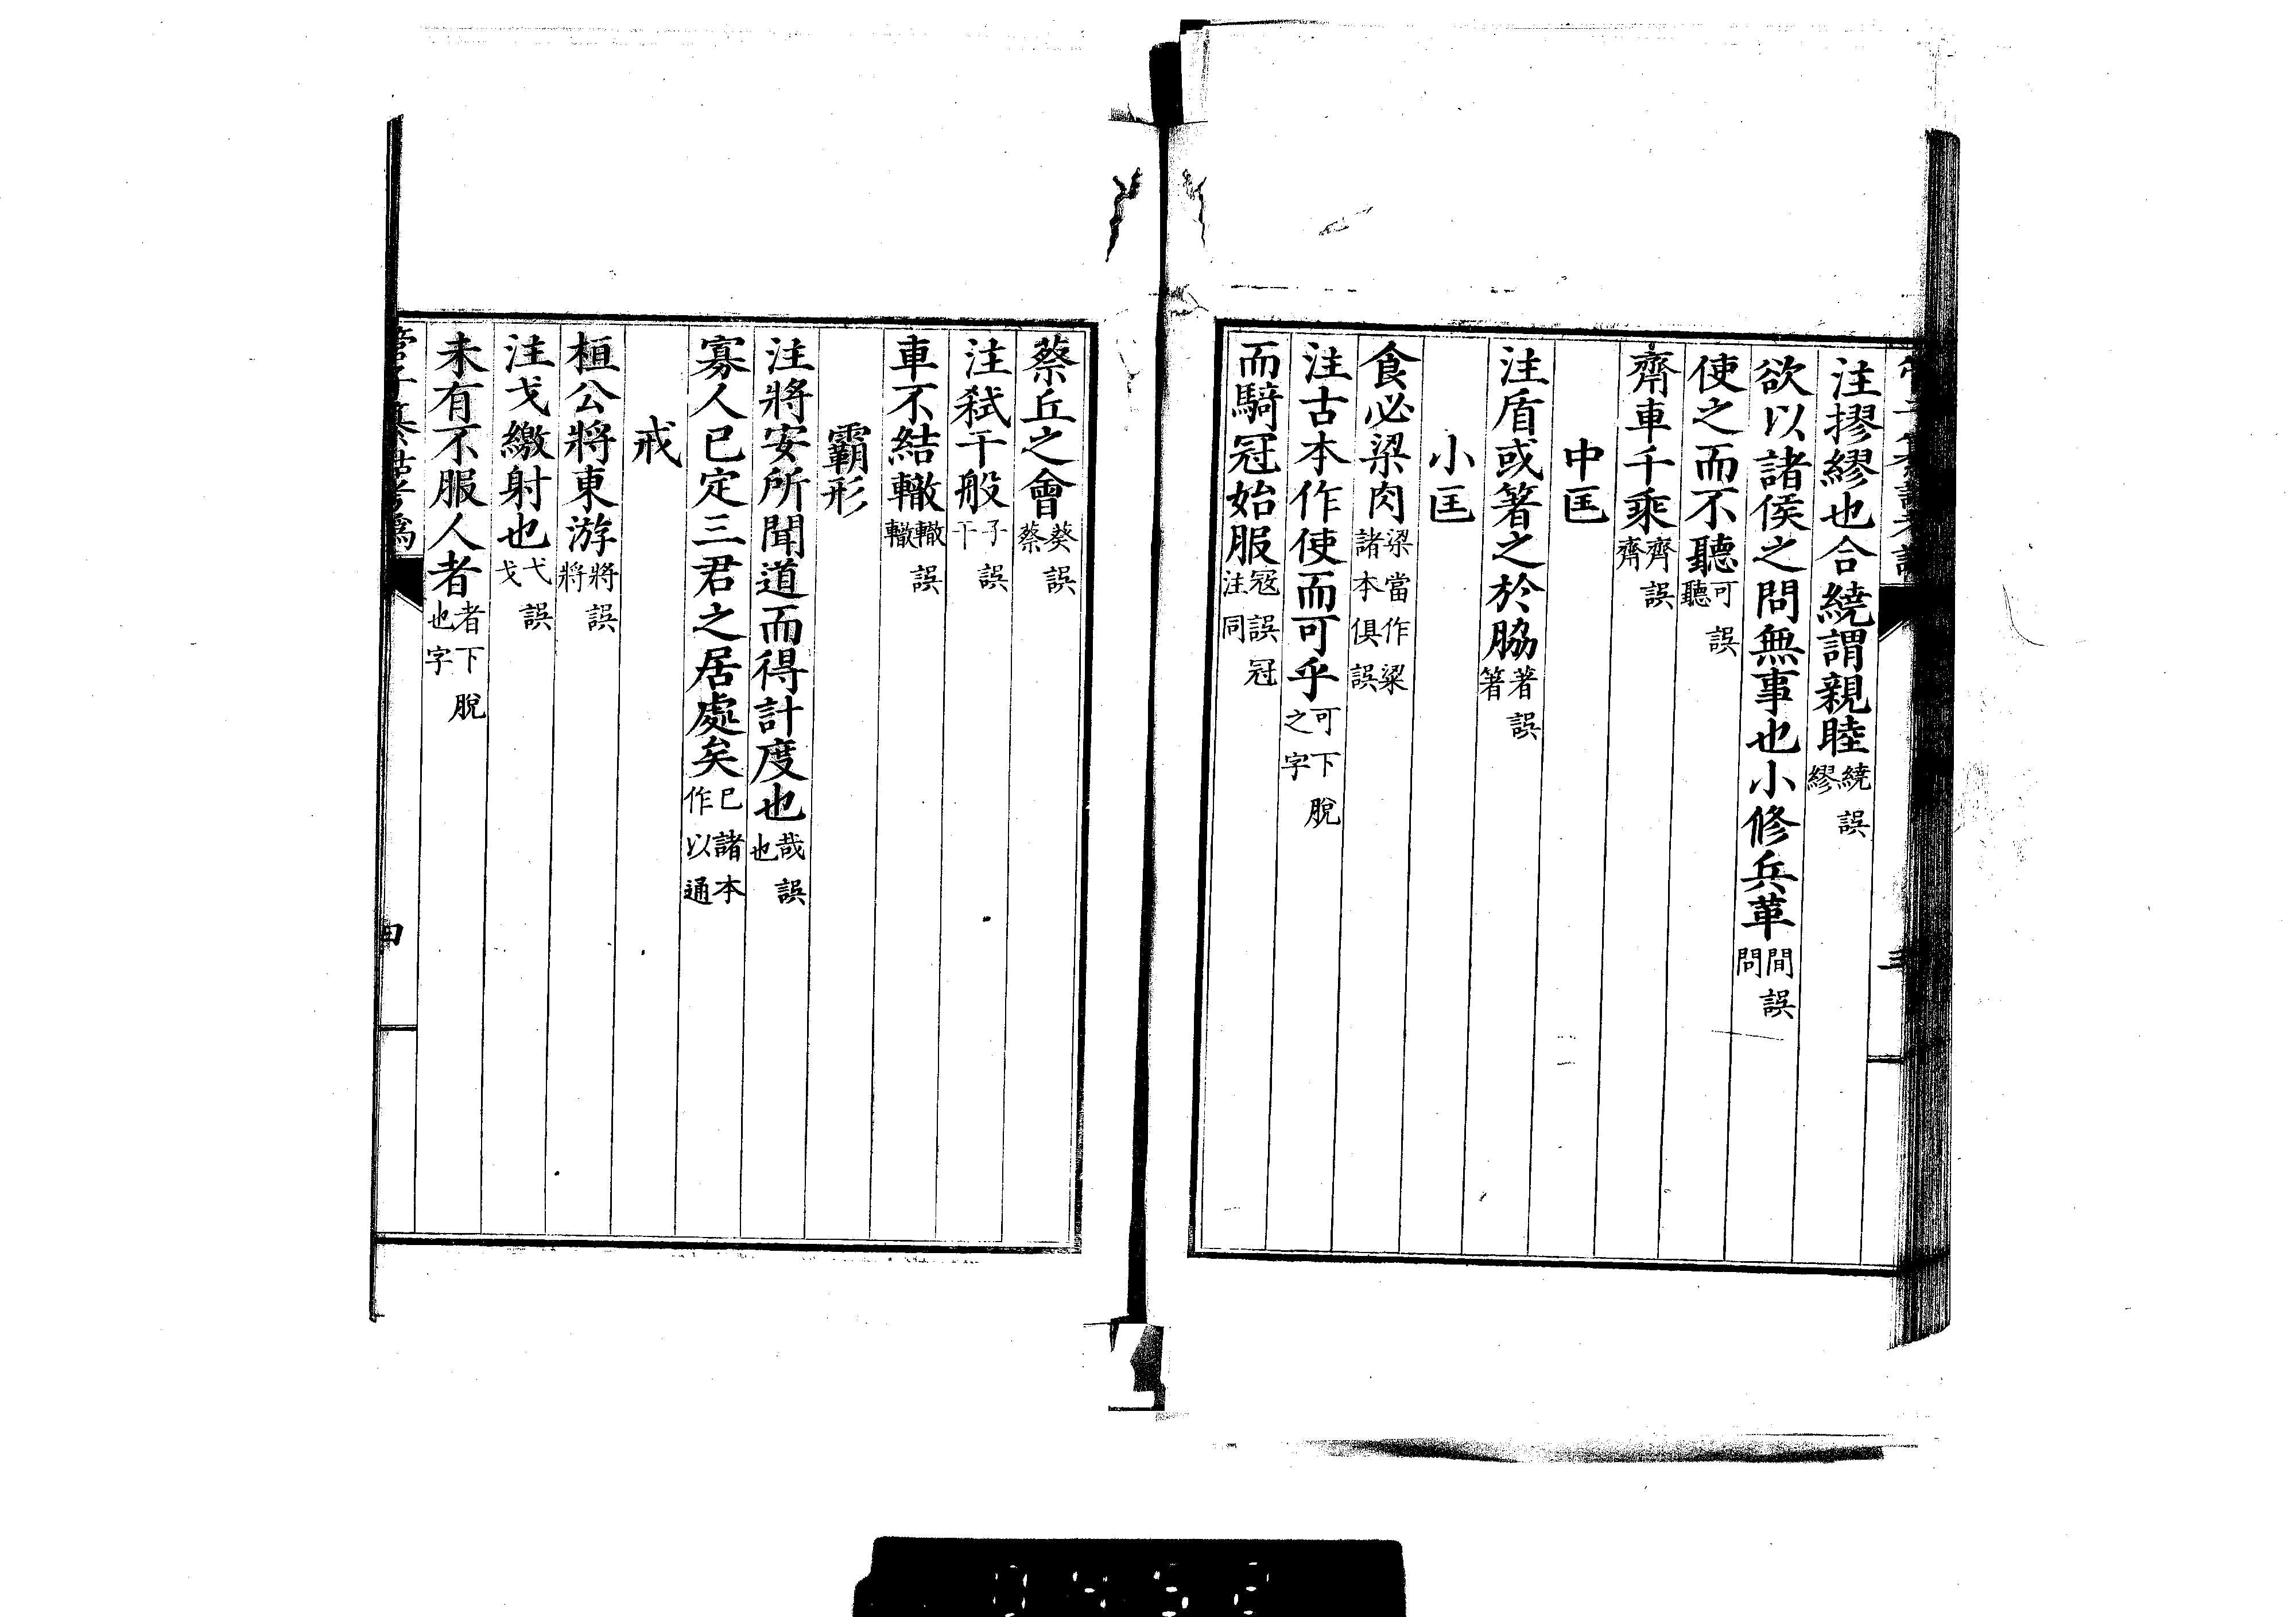 注摎繆也合繞謂親睦繞誤繆
欲以諸侯之問無事也小修兵革間誤問
使之而不聽可誤聽
齊車千乘齊誤齊
中匡
注盾或箸之於脇著誤箸
小匡
食必梁肉梁當作粱諸本俱誤
注古本作使而可乎可下脫之字
而騎冠始服冦誤冠注同
三
蔡丘之會葵誤蔡
注弑干般子誤干
車不結轍轍誤轍
霸形
注將安所聞道而得計度也哉誤也
寡人已定三君之居處矣已諸本作以通
戒
桓公將東游將誤將
注戈繳射也弋誤戈
未有不服人者者下脫也字